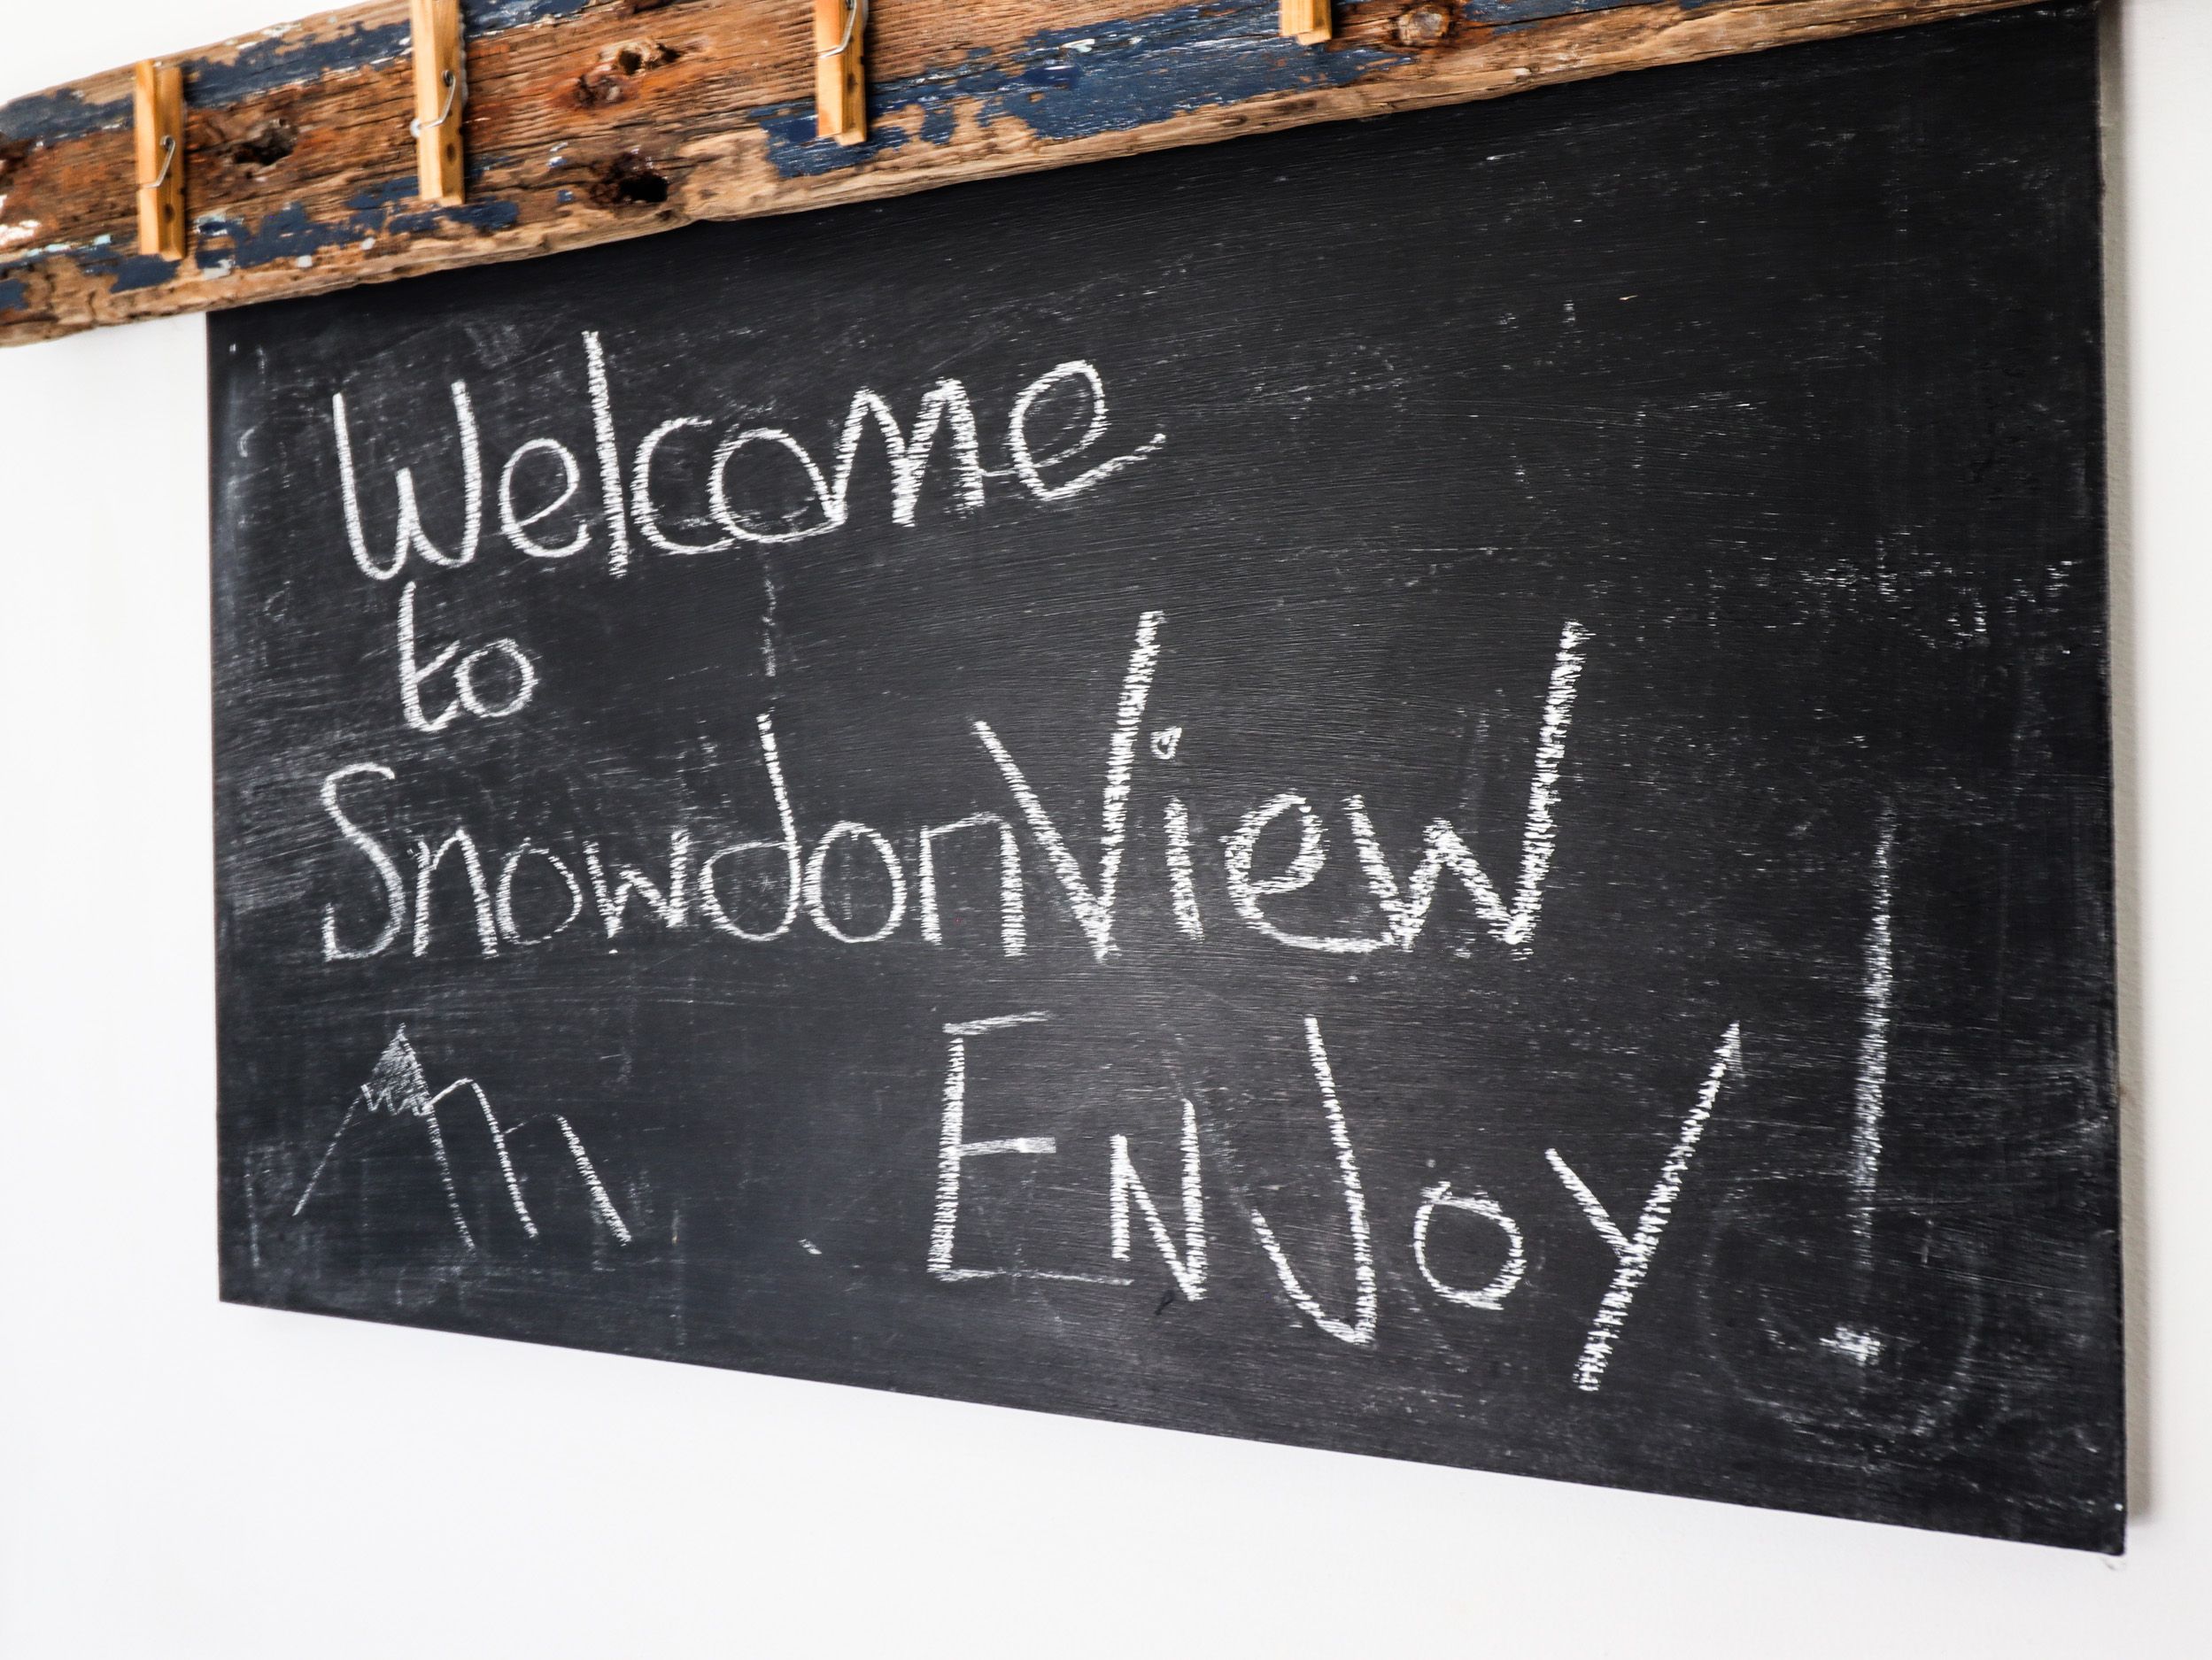 Welcome
to
SnowdonView
EnJoy!